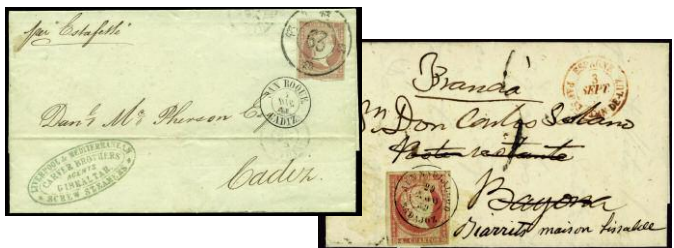 per Estafette
63
SAN ROQUE
CADIZ
Danl. Mc. Pherson Esq
Cadiz
LIVERPOOL & MEDITERRANEAN
CARVER BROTHERS
AGENTS
GIBRALTAR
SCREW STEAMERS
Francia
ESPAGNE
3
SEPT
Don Carlos Solano
Poste restante
Bayona
Biarritz maison
CUARTOS